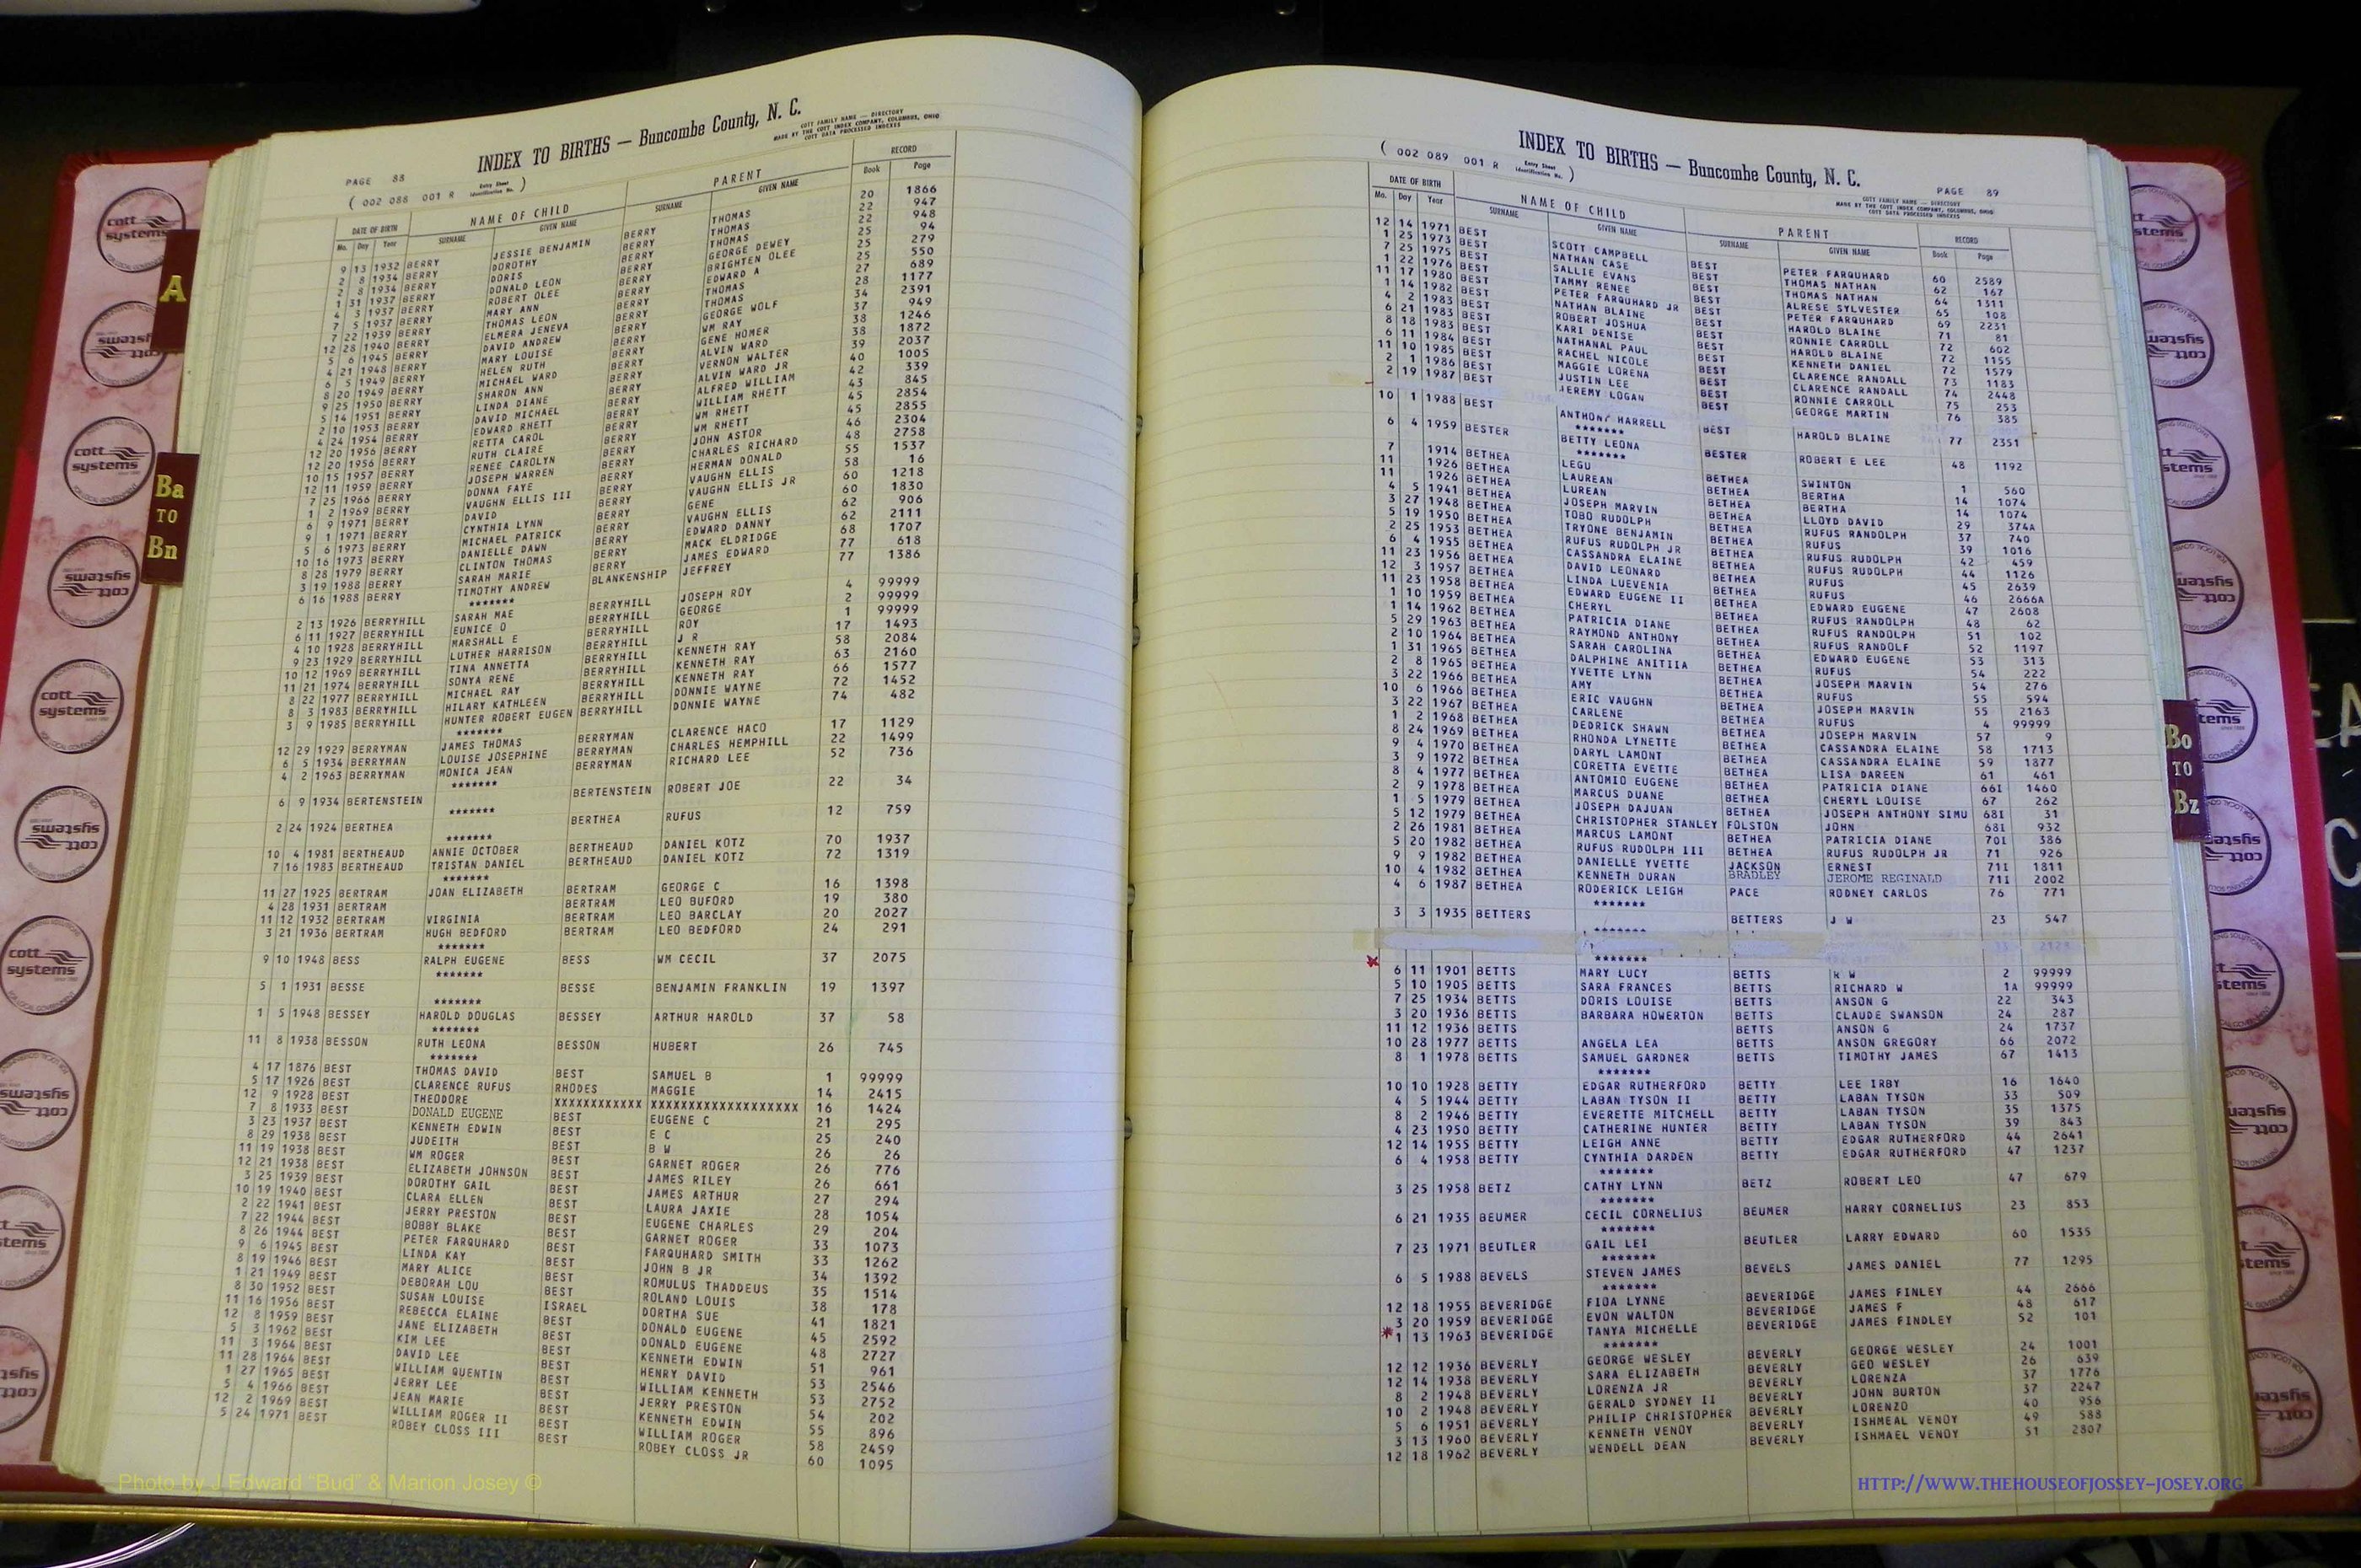 INDEX TO BIRTHS — Buncombe County, N. C.
COTT FAMILY NAME — DIRECTORY
MADE BY THE COTT INDEX COMPANY, COLUMBUS, OHIO
COTT DATA PROCESSED INDEXES
PAGE 88
( 002 088 001 R Entry Sheet Identification No. )
DATE OF BIRTH NAME OF CHILD PARENT RECORD
Mo. Day Year SURNAME GIVEN NAME SURNAME GIVEN NAME Book Page
9 13 1932 BERRY JESSIE BENJAMIN BERRY THOMAS 20 1866
2 8 1934 BERRY DOROTHY BERRY THOMAS 22 947
2 8 1934 BERRY DORIS BERRY THOMAS 22 948
1 31 1937 BERRY DONALD LEON BERRY GEORGE DEWEY 25 94
4 3 1937 BERRY ROBERT OLEE BERRY BRIGHTEN OLEE 25 279
7 5 1937 BERRY MARY ANN BERRY EDWARD A 25 550
7 22 1939 BERRY THOMAS LEON BERRY THOMAS 27 689
12 28 1940 BERRY ELMERA JENEVA BERRY THOMAS 28 1177
5 6 1945 BERRY DAVID ANDREW BERRY GEORGE WOLF 34 2391
4 21 1948 BERRY MARY LOUISE BERRY WM RAY 37 949
6 5 1949 BERRY HELEN RUTH BERRY GENE HOMER 38 1246
8 20 1949 BERRY MICHAEL WARD BERRY ALVIN WARD 38 1872
9 25 1950 BERRY SHARON ANN BERRY VERNON WALTER 39 2037
5 14 1951 BERRY LINDA DIANE BERRY ALVIN WARD JR 40 1005
2 10 1953 BERRY DAVID MICHAEL BERRY ALFRED WILLIAM 42 339
4 24 1954 BERRY EDWARD RHETT BERRY WILLIAM RHETT 43 845
12 20 1956 BERRY RETTA CAROL BERRY WM RHETT 45 2854
12 20 1956 BERRY RUTH CLAIRE BERRY WM RHETT 45 2855
10 15 1957 BERRY RENEE CAROLYN BERRY JOHN ASTOR 46 2304
12 11 1959 BERRY JOSEPH WARREN BERRY CHARLES RICHARD 48 2758
7 25 1966 BERRY DONNA FAYE BERRY HERMAN DONALD 55 1537
1 2 1969 BERRY VAUGHN ELLIS III BERRY VAUGHN ELLIS 58 16
6 9 1971 BERRY DAVID BERRY VAUGHN ELLIS JR 60 1218
9 1 1971 BERRY CYNTHIA LYNN BERRY GENE 60 1830
5 6 1973 BERRY MICHAEL PATRICK BERRY VAUGHN ELLIS 62 906
10 16 1973 BERRY DANIELLE DAWN BERRY EDWARD DANNY 62 2111
8 28 1979 BERRY CLINTON THOMAS BERRY MACK ELDRIDGE 68 1707
3 19 1988 BERRY SARAH MARIE BERRY JAMES EDWARD 77 618
6 16 1988 BERRY TIMOTHY ANDREW BLANKENSHIP JEFFREY 77 1386
*******
2 13 1926 BERRYHILL SARAH MAE BERRYHILL JOSEPH ROY 4 99999
6 11 1927 BERRYHILL EUNICE O BERRYHILL GEORGE 2 99999
4 10 1928 BERRYHILL MARSHALL E BERRYHILL ROY 1 99999
9 23 1929 BERRYHILL LUTHER HARRISON BERRYHILL J R 17 1493
10 12 1969 BERRYHILL TINA ANNETTA BERRYHILL KENNETH RAY 58 2084
11 21 1974 BERRYHILL SONYA RENE BERRYHILL KENNETH RAY 63 2160
8 22 1977 BERRYHILL MICHAEL RAY BERRYHILL KENNETH RAY 66 1577
8 3 1983 BERRYHILL HILARY KATHLEEN BERRYHILL DONNIE WAYNE 72 1452
3 9 1985 BERRYHILL HUNTER ROBERT EUGEN BERRYHILL DONNIE WAYNE 74 482
*******
12 29 1929 BERRYMAN JAMES THOMAS BERRYMAN CLARENCE HACO 17 1129
6 5 1934 BERRYMAN LOUISE JOSEPHINE BERRYMAN CHARLES HEMPHILL 22 1499
4 2 1963 BERRYMAN MONICA JEAN BERRYMAN RICHARD LEE 52 736
*******
6 9 1934 BERTENSTEIN BERTENSTEIN ROBERT JOE 22 34
*******
2 24 1924 BERTHEA BERTHEA RUFUS 12 759
*******
10 4 1981 BERTHEAUD ANNIE OCTOBER BERTHEAUD DANIEL KOTZ 70 1937
7 16 1983 BERTHEAUD TRISTAN DANIEL BERTHEAUD DANIEL KOTZ 72 1319
*******
11 27 1925 BERTRAM JOAN ELIZABETH BERTRAM GEORGE C 16 1398
4 28 1931 BERTRAM BERTRAM LEO BUFORD 19 380
11 12 1932 BERTRAM VIRGINIA BERTRAM LEO BARCLAY 20 2027
3 21 1936 BERTRAM HUGH BEDFORD BERTRAM LEO BEDFORD 24 291
*******
9 10 1948 BESS RALPH EUGENE BESS WM CECIL 37 2075
*******
5 1 1931 BESSE BESSE BENJAMIN FRANKLIN 19 1397
*******
1 5 1948 BESSEY HAROLD DOUGLAS BESSEY ARTHUR HAROLD 37 58
*******
11 8 1938 BESSON RUTH LEONA BESSON HUBERT 26 745
*******
4 17 1876 BEST THOMAS DAVID BEST SAMUEL B 1 99999
5 17 1926 BEST CLARENCE RUFUS RHODES MAGGIE 14 2415
12 9 1928 BEST THEODORE XXXXXXXXXXXX XXXXXXXXXXXXXXXXXXXX 16 1424
7 8 1933 BEST DONALD EUGENE BEST EUGENE C 21 295
3 23 1937 BEST KENNETH EDWIN BEST E C 25 240
8 29 1938 BEST JUDEITH BEST B W 26 26
11 19 1938 BEST WM ROGER BEST GARNET ROGER 26 776
12 21 1938 BEST ELIZABETH JOHNSON BEST JAMES RILEY 26 661
3 25 1939 BEST DOROTHY GAIL BEST JAMES ARTHUR 27 294
10 19 1940 BEST CLARA ELLEN BEST LAURA JAXIE 28 1054
2 22 1941 BEST JERRY PRESTON BEST EUGENE CHARLES 29 204
7 22 1944 BEST BOBBY BLAKE BEST GARNET ROGER 33 1073
8 26 1944 BEST PETER FARQUHARD BEST FARQUHARD SMITH 33 1262
9 6 1945 BEST LINDA KAY BEST JOHN B JR 34 1392
8 19 1946 BEST MARY ALICE BEST ROMULUS THADDEUS 35 1514
1 21 1949 BEST DEBORAH LOU BEST ROLAND LOUIS 38 178
8 30 1952 BEST SUSAN LOUISE ISRAEL DORTHA SUE 41 1821
11 16 1956 BEST REBECCA ELAINE BEST DONALD EUGENE 45 2592
12 8 1959 BEST JANE ELIZABETH BEST DONALD EUGENE 48 2727
5 3 1962 BEST KIM LEE BEST KENNETH EDWIN 51 961
11 3 1964 BEST DAVID LEE BEST HENRY DAVID 53 2546
11 28 1964 BEST WILLIAM QUENTIN BEST WILLIAM KENNETH 53 2752
1 27 1965 BEST JERRY LEE BEST JERRY PRESTON 54 202
5 4 1966 BEST JEAN MARIE BEST KENNETH EDWIN 55 896
12 2 1969 BEST WILLIAM ROGER II BEST WILLIAM ROGER 58 2459
5 24 1971 BEST ROBEY CLOSS III BEST ROBEY CLOSS JR 60 1095
INDEX TO BIRTHS — Buncombe County, N. C.
( 002 089 001 R Entry Sheet Identification No. )
PAGE 89
COTT FAMILY NAME — DIRECTORY
MADE BY THE COTT INDEX COMPANY, COLUMBUS, OHIO
COTT DATA PROCESSED INDEXES
DATE OF BIRTH NAME OF CHILD PARENT RECORD
Mo. Day Year SURNAME GIVEN NAME SURNAME GIVEN NAME Book Page
12 14 1971 BEST SCOTT CAMPBELL BEST PETER FARQUHARD 60 2589
1 25 1973 BEST NATHAN CASE BEST THOMAS NATHAN 62 167
7 25 1975 BEST SALLIE EVANS BEST THOMAS NATHAN 64 1311
1 22 1976 BEST TAMMY RENEE BEST ALRESE SYLVESTER 65 108
11 17 1980 BEST PETER FARQUHARD JR BEST PETER FARQUHARD 69 2231
1 14 1982 BEST NATHAN BLAINE BEST HAROLD BLAINE 71 81
4 2 1983 BEST ROBERT JOSHUA BEST RONNIE CARROLL 72 602
6 21 1983 BEST KARI DENISE BEST HAROLD BLAINE 72 1155
8 18 1983 BEST NATHANAL PAUL BEST KENNETH DANIEL 72 1579
6 11 1984 BEST RACHEL NICOLE BEST CLARENCE RANDALL 73 1183
11 10 1985 BEST MAGGIE LORENA BEST CLARENCE RANDALL 74 2448
2 1 1986 BEST JUSTIN LEE BEST RONNIE CARROLL 75 253
2 19 1987 BEST JEREMY LOGAN BEST GEORGE MARTIN 76 385
10 1 1988 BEST ANTHONY HARRELL BEST HAROLD BLAINE 77 2351
*******
6 4 1959 BESTER BETTY LEONA BESTER ROBERT E LEE 48 1192
*******
7 1914 BETHEA LEGU BETHEA SWINTON 1 560
11 1926 BETHEA LAUREAN BETHEA BERTHA 14 1074
11 1926 BETHEA LUREAN BETHEA BERTHA 14 1074
4 5 1941 BETHEA JOSEPH MARVIN BETHEA LLOYD DAVID 29 374A
3 27 1948 BETHEA TOBO RUDOLPH BETHEA RUFUS RANDOLPH 37 740
5 19 1950 BETHEA TRYONE BENJAMIN BETHEA RUFUS 39 1016
2 25 1953 BETHEA RUFUS RUDOLPH JR BETHEA RUFUS RUDOLPH 42 459
6 4 1955 BETHEA CASSANDRA ELAINE BETHEA RUFUS RUDOLPH 44 1126
11 23 1956 BETHEA DAVID LEONARD BETHEA RUFUS 45 2639
12 3 1957 BETHEA LINDA LUEVENIA BETHEA RUFUS 46 2666A
11 23 1958 BETHEA EDWARD EUGENE II BETHEA EDWARD EUGENE 47 2608
1 10 1959 BETHEA CHERYL BETHEA RUFUS RANDOLPH 48 62
1 14 1962 BETHEA PATRICIA DIANE BETHEA RUFUS RANDOLPH 51 102
5 29 1963 BETHEA RAYMOND ANTHONY BETHEA RUFUS RANDOLF 52 1197
2 10 1964 BETHEA SARAH CAROLINA BETHEA EDWARD EUGENE 53 313
1 31 1965 BETHEA DALPHINE ANITIIA BETHEA RUFUS 54 222
2 8 1965 BETHEA YVETTE LYNN BETHEA JOSEPH MARVIN 54 276
3 22 1966 BETHEA AMY BETHEA RUFUS 55 594
10 6 1966 BETHEA ERIC VAUGHN BETHEA JOSEPH MARVIN 55 2163
3 22 1967 BETHEA CARLENE BETHEA RUFUS 4 99999
1 2 1968 BETHEA DEDRICK SHAWN BETHEA JOSEPH MARVIN 57 9
8 24 1969 BETHEA RHONDA LYNETTE BETHEA CASSANDRA ELAINE 58 1713
9 4 1970 BETHEA DARYL LAMONT BETHEA CASSANDRA ELAINE 59 1877
3 9 1972 BETHEA CORETTA EVETTE BETHEA LISA DAREEN 61 461
8 4 1977 BETHEA ANTOMIO EUGENE BETHEA PATRICIA DIANE 66I 1460
2 9 1978 BETHEA MARCUS DUANE BETHEA CHERYL LOUISE 67 262
1 5 1979 BETHEA JOSEPH DAJUAN BETHEA JOSEPH ANTHONY SIMU 68I 31
5 12 1979 BETHEA CHRISTOPHER STANLEY FOLSTON JOHN 68I 932
2 26 1981 BETHEA MARCUS LAMONT BETHEA PATRICIA DIANE 70I 386
5 20 1982 BETHEA RUFUS RUDOLPH III BETHEA RUFUS RUDOLPH JR 71 926
9 9 1982 BETHEA DANIELLE YVETTE JACKSON ERNEST 71I 1811
10 4 1982 BETHEA KENNETH DURAN BRADLEY JEROME REGINALD 71I 2002
4 6 1987 BETHEA RODERICK LEIGH PACE RODNEY CARLOS 76 771
*******
3 3 1935 BETTERS BETTERS J W 23 547
*******
6 11 1901 BETTS MARY LUCY BETTS R W 2 99999
5 10 1905 BETTS SARA FRANCES BETTS RICHARD W 1A 99999
7 25 1934 BETTS DORIS LOUISE BETTS ANSON G 22 343
3 20 1936 BETTS BARBARA HOWERTON BETTS CLAUDE SWANSON 24 287
11 12 1936 BETTS BETTS ANSON G 24 1737
10 28 1977 BETTS ANGELA LEA BETTS ANSON GREGORY 66 2072
8 1 1978 BETTS SAMUEL GARDNER BETTS TIMOTHY JAMES 67 1413
*******
10 10 1928 BETTY EDGAR RUTHERFORD BETTY LEE IRBY 16 1640
4 5 1944 BETTY LABAN TYSON II BETTY LABAN TYSON 33 509
8 2 1946 BETTY EVERETTE MITCHELL BETTY LABAN TYSON 35 1375
4 23 1950 BETTY CATHERINE HUNTER BETTY LABAN TYSON 39 843
12 14 1955 BETTY LEIGH ANNE BETTY EDGAR RUTHERFORD 44 2641
6 4 1958 BETTY CYNTHIA DARDEN BETTY EDGAR RUTHERFORD 47 1237
*******
3 25 1958 BETZ CATHY LYNN BETZ ROBERT LEO 47 679
*******
6 21 1935 BEUMER CECIL CORNELIUS BEUMER HARRY CORNELIUS 23 853
*******
7 23 1971 BEUTLER GAIL LEI BEUTLER LARRY EDWARD 60 1535
*******
6 5 1988 BEVELS STEVEN JAMES BEVELS JAMES DANIEL 77 1295
*******
12 18 1955 BEVERIDGE FIOA LYNNE BEVERIDGE JAMES FINLEY 44 2666
3 20 1959 BEVERIDGE EVON WALTON BEVERIDGE JAMES F 48 617
*1 13 1963 BEVERIDGE TANYA MICHELLE BEVERIDGE JAMES FINDLEY 52 101
*******
12 12 1936 BEVERLY GEORGE WESLEY BEVERLY GEORGE WESLEY 24 1001
12 14 1938 BEVERLY SARA ELIZABETH BEVERLY GEO WESLEY 26 639
8 2 1948 BEVERLY LORENZA JR BEVERLY LORENZA 37 1776
10 2 1948 BEVERLY GERALD SYDNEY II BEVERLY JOHN BURTON 37 2247
5 6 1951 BEVERLY PHILIP CHRISTOPHER BEVERLY LORENZO 40 956
3 13 1960 BEVERLY KENNETH VENOY BEVERLY ISHMEAL VENOY 49 588
12 18 1962 BEVERLY WENDELL DEAN BEVERLY ISHMAEL VENOY 51 2807
A
Ba TO Bn
Bo TO Bz
cott systems
Photo by J Edward "Bud" & Marion Josey ©
HTTP://WWW.THEHOUSEOFJOSSEY-JOSEY.ORG